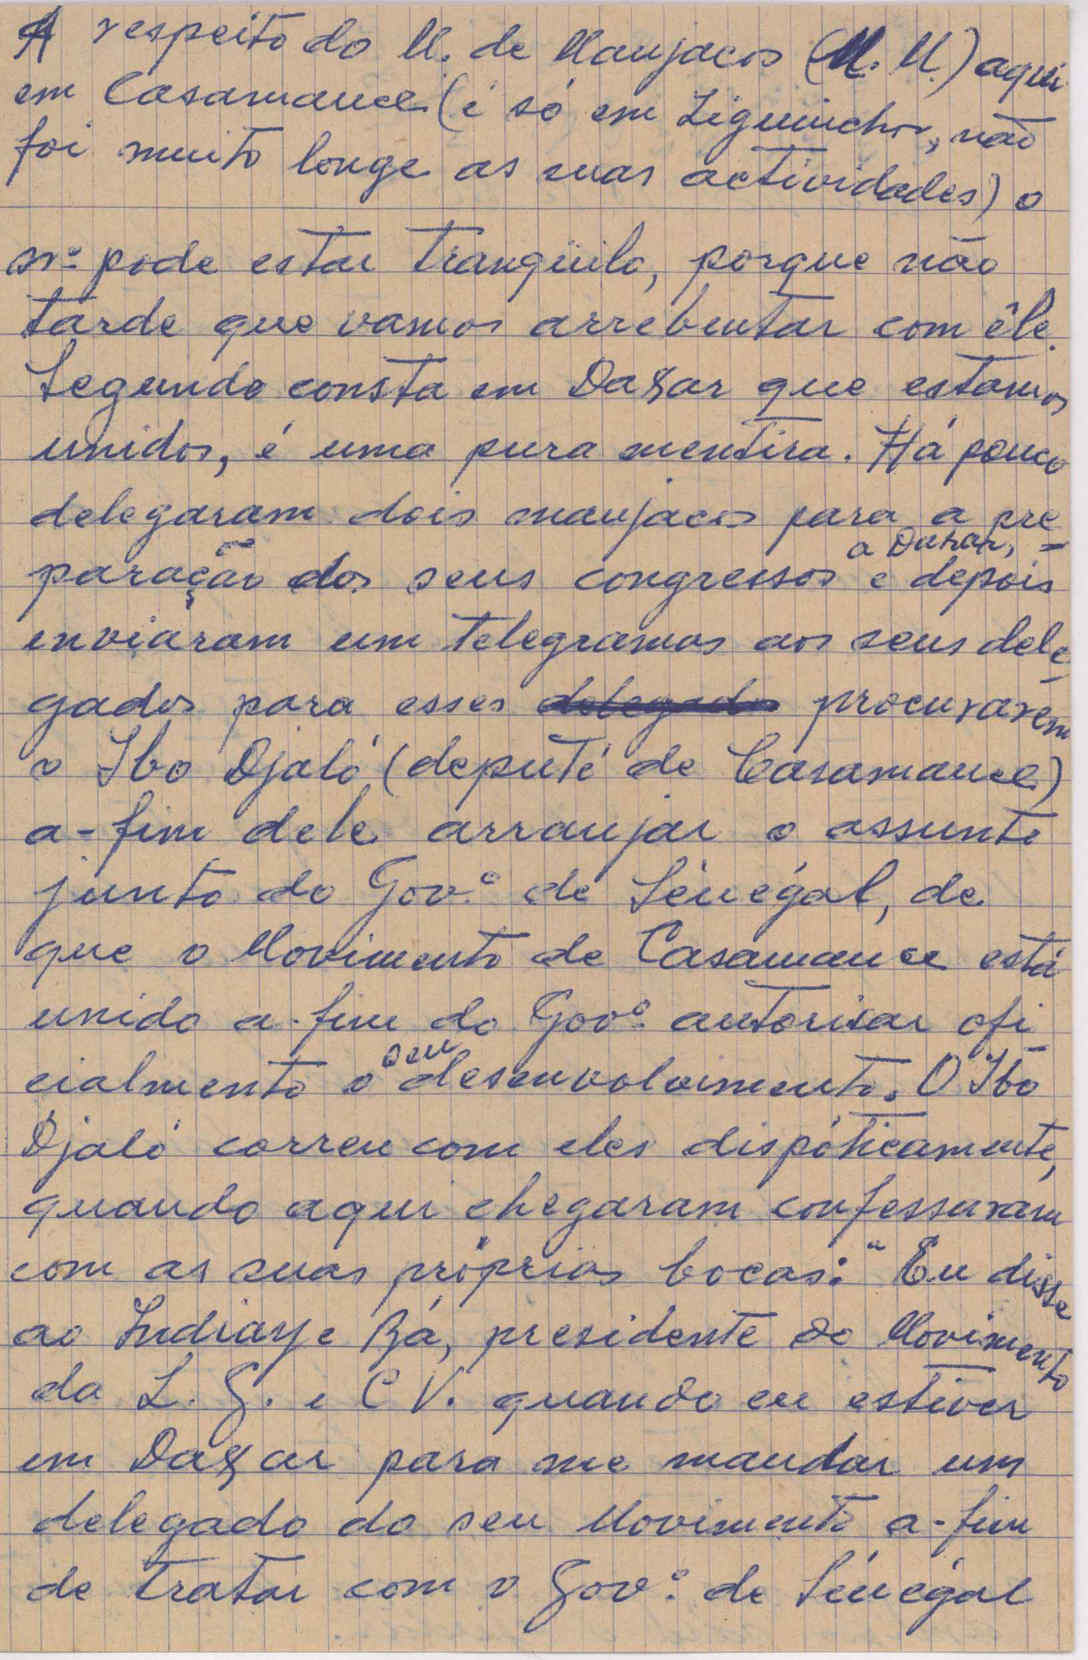 A respeito do M. de Manjacos (M. M.) aqui
em Casamance (é só em Ziguinchor, não
foi muito longe as suas actividades) o
snr. pode estar tranqüilo, porque não
tarde que vamos arrebentar com êle.
Segundo consta em Dakar que estamos
unidos, é uma pura mentira. Há pouco
delegaram dois manjacos para a pre-
a Dakar,
paração dos seus congressos e depois
enviaram um telegramas aos seus dele-
gados para esses delegados procurarem
o Ibo Djaló (deputé de Casamance)
a-fim dele arranjar o assunto
junto do Gov.º de Sénégal, de
que o Movimento de Casamance está
unido a-fim do Gov.º autorisar ofi-
cialmento o seu desenvolvimento. O Ibo
Djaló correu com eles dispóticamente,
quando aqui chegaram confessaram
com as suas próprias bocas: "Eu disse
ao Indiaye Bá, presidente do Movimento
da L. G. e C V. quando eu estiver
em Dakar para me mandar um
delegado do seu Movimento a-fim
de tratar com o Gov.º de Sénégal